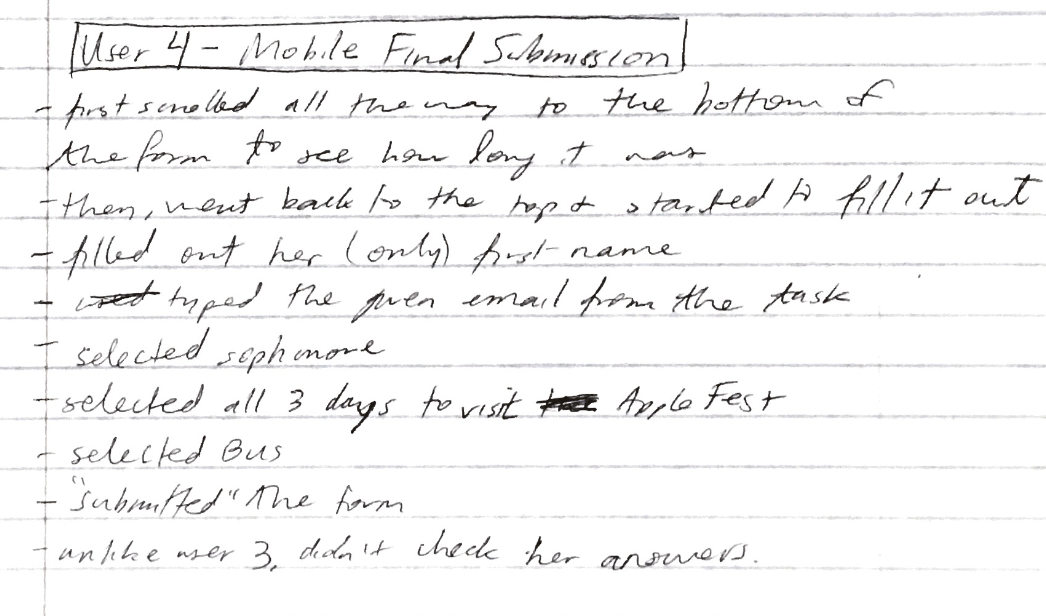 User 4 - Mobile Final Submission
- first scrolled all the way to the bottom of
the form to see how long it was
- then, went back to the top & started to fill it out
- filled out her (only) first-name
- used typed the given email from the task
- selected sophmore
- selected all 3 days to visit the Apple Fest
- selected Bus
- "submitted" the form
- unlike user 3, didn't check her answers.